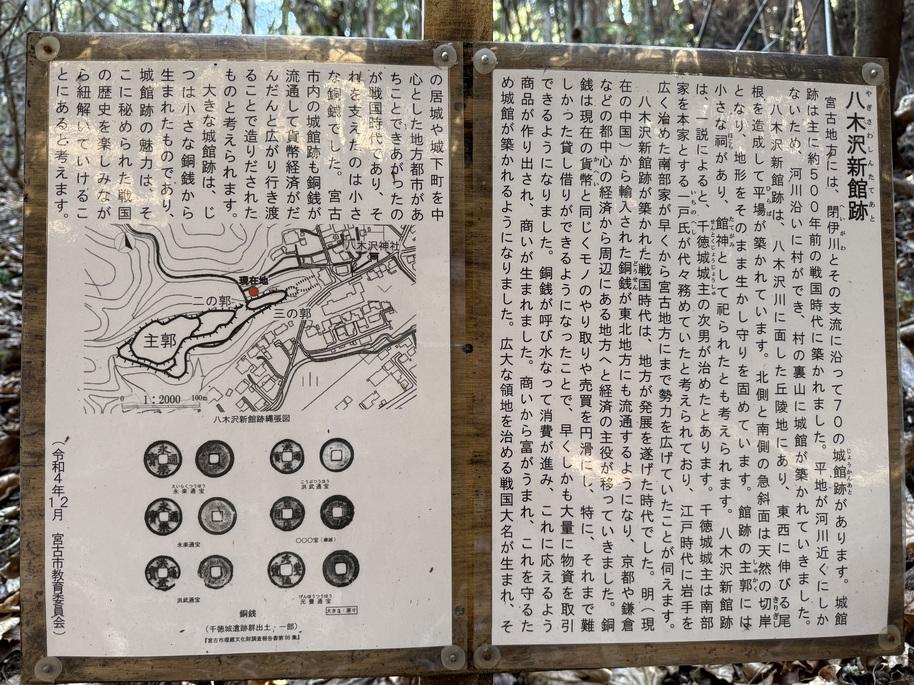 八木沢新館跡
やぎさわしんたてあと
宮古地方には、閉伊川とその支流に沿って70の城館跡があります。城館
跡は主に約500年前の戦国時代に築かれました。平地が河川近くにしか
ないため、河川沿いに村ができ、村の裏山に城館が築かれていきました。
八木沢新館跡は、八木沢川に面した丘陵地にあり、東西に伸びる尾
根を造成して平場が築かれています。北側と南側の急斜面は天然の切岸
となり、地形をそのまま生かし守りを固めています。館跡の主郭には
小さな祠があり、館神として祀られたとも考えられます。八木沢新館跡
は、一説によると、千徳城城主の次男が治めたとあります。千徳城城主は南部
家を本家とする一戸氏が代々務めていたと考えられており、江戸時代に岩手を
広く治めた南部家が早くから宮古地方にまで勢力を広げていたことが伺えます。
八木沢新館跡が築かれた戦国時代は、地方が発展を遂げた時代でした。明（現
在の中国）から輸入された銅銭が東北地方にも流通するようになり、京都や鎌倉
などの都中心の経済から周辺にある地方へと経済の主役が移っていきました。銅
銭は現在の貨幣と同じくモノのやり取りや売買を円滑にし、特に、それまで難
しかった貸し借りができるようになったことで、早くしかも大量に物資を取引
できるようになりました。銅銭が呼び水なって消費が進み、これに応えるよう
商品が作り出され、商いが生まれました。商いから富がうまれ、これを守るた
め城館が築かれるようになりました。広大な領地を治める戦国大名が生まれ、そ
の居城や城下町を中
心とした地方都市があ
ちこちでできあがったの
が戦国時代であり、そ
れを支えたのは小さ
な銅銭でした。宮古
市内の城館跡も銅銭が
流通して貨幣経済がだ
んだんと広がり行き渡
ることで造りだされた
ものと考えられます。
大きな城館跡は、じ
つは小さな銅銭から
生まれたものであり、
城館跡の魅力は、そ
こに秘められた戦国
の歴史を楽しみなが
ら紐解いていけるこ
とにあると考えます。
八木沢神社
現在地
二の郭
三の郭
主郭
0 1:2000 100m
八木沢新館跡縄張図
えいらくつうほう
永楽通宝
こうぶつうほう
洪武通宝
永楽通宝
〇〇〇宝（摩滅）
洪武通宝
げんほうつうほう
元豊通宝
大きさ：原寸
銅銭
（千徳城遺跡群出土：一部）
『宮古市埋蔵文化財調査報告書第95集』
（令和4年12月　宮古市教育委員会）